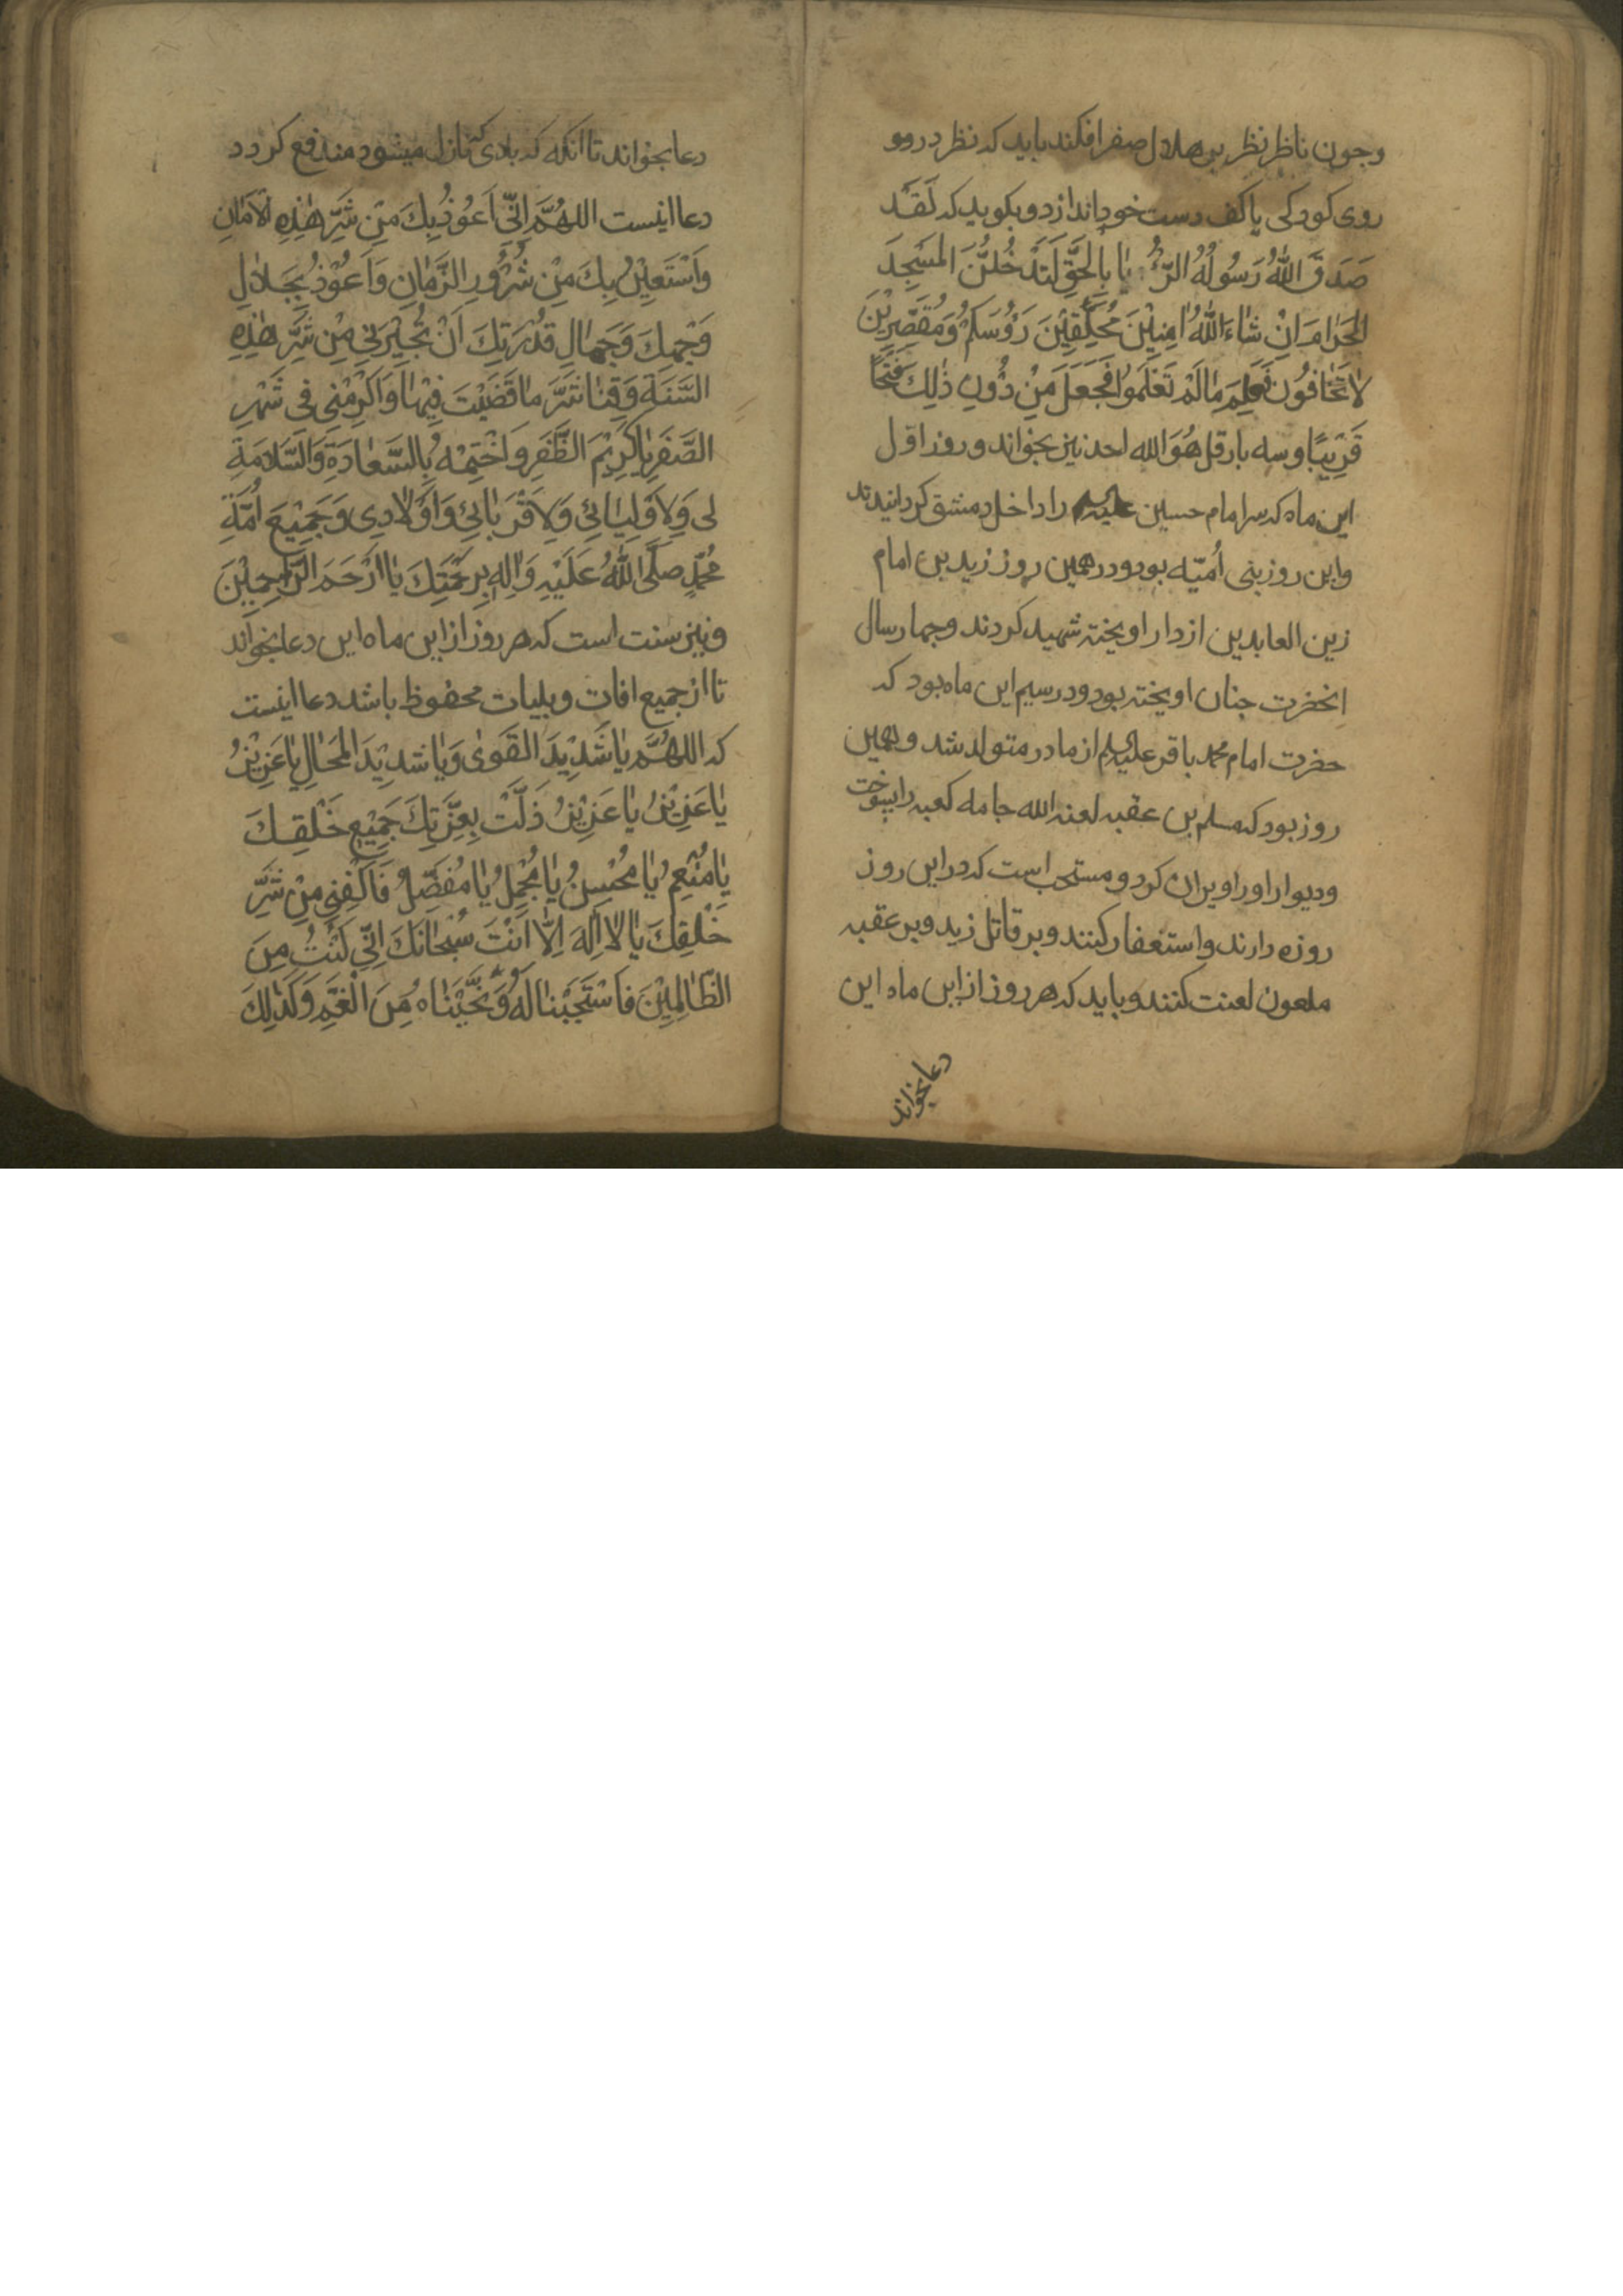 وجون ناظر نظر بر هلال صفر افکند باید که نظر در روو
روی کودکی یا کف دست خود اندازد و بکوید که لَقَد
صَدَقَ اللهُ رَسُولَهُ الرُّءْیَا بِالحَقِّ لَتَدْخُلُنَّ المَسْجِدَ
الحَرَامَ اِنْ شَاءَ اللهُ امِنِیْنَ مُحَلِّقِیْنَ رَؤُسَکُمْ وَمُقَصِّرِیْنَ
لَا تَخَافُونَ فَعَلِمَ مَا لَمْ تَعْلَمُوا فَجَعَلَ مِنْ دُونِ ذٰلِكَ فَتْحًا
قَرِیْبًا و سه بار قل هُوَ الله احد نیز بخواند و روز اول
این ماه که سر امام حسین علیه را داخل دمشق کردانیدند
و این روز بنی اُمیّه بود و در همین روز زید بن امام
زین العابدین از دار اویخته شهید کردند و جهار سال
انحضرت جنان اویخته بود و در سیم این ماه بود که
حضرت امام محمد باقر علیه السلام از مادر متولد شد و بهمین
روز بود که مسلم بن عقبه لعنه الله جامه کعبه را بسوخت
و دیوار او را ویران کرد و مستحب است که در این روز
روزه دارند و استغفار کنند و بر قاتل زید و بر عقبه
ملعون لعنت کنند و باید که هر روز از این ماه این
دعا بخواند
دعا بخواند تا انکه که بلای کنازل میشود مندفع کردد
دعا اینست اللهُمَّ اِنِّی اَعُوْذُ بِكَ مِنْ شَرِّ هٰذِهِ الاَمَانِ
وَاَسْتَعِیْنُ بِكَ مِنْ شُرُوْرِ الزَّمَانِ وَاَعُوْذُ بِجَلَالِ
وَجْهِكَ وَجَمَالِ قُدْرَتِكَ اَنْ تُجِیْرَنِی مِنْ شَرِّ هٰذِهِ
السَّنَةِ وَقِنَا شَرَّ مَا قَضَیْتَ فِیْهَا وَاَکْرِمْنِی فِی شَهْرِ
الصَّفَرِ یَا کَرِیْمَ الظَّفَرِ وَاخْتِمْهُ بِالسَّعَادَةِ وَالسَّلَامَةِ
لِی وَلِاَوْلِیَائِی وَلِاَقْرَبَائِی وَاَوْلَادِی وَجَمِیْعِ اُمَّةِ
مُحَمَّدٍ صَلَّی اللهُ عَلَیْهِ وَاٰلِهِ بِرَحْمَتِكَ یَا اَرْحَمَ الرَّاحِمِیْنَ
و نیز سنت است که هر روز از این ماه این دعا بخواند
تا از جمیع افات و بلیات محفوظ باشد دعا اینست
که اللهُمَّ یَا شَدِیْدَ القُوَی وَیَا شَدِیْدَ المِحَالِ یَا عَزِیْزُ
یَا عَزِیْزُ یَا عَزِیْزُ ذَلَّتْ بِعِزَّتِكَ جَمِیْعُ خَلْقِكَ
یَا مُنْعِمُ یَا مُحْسِنُ یَا مُجْمِلُ یَا مُفَضِّلُ فَاکْفِنِی مِنْ شَرِّ
خَلْقِكَ یَا لَا اِلٰهَ اِلَّا اَنْتَ سُبْحَانَكَ اِنِّی کُنْتُ مِنَ
الظَّالِمِیْنَ فَاسْتَجَبْنَا لَهُ وَنَجَّیْنَاهُ مِنَ الْغَمِّ وَکَذٰلِكَ